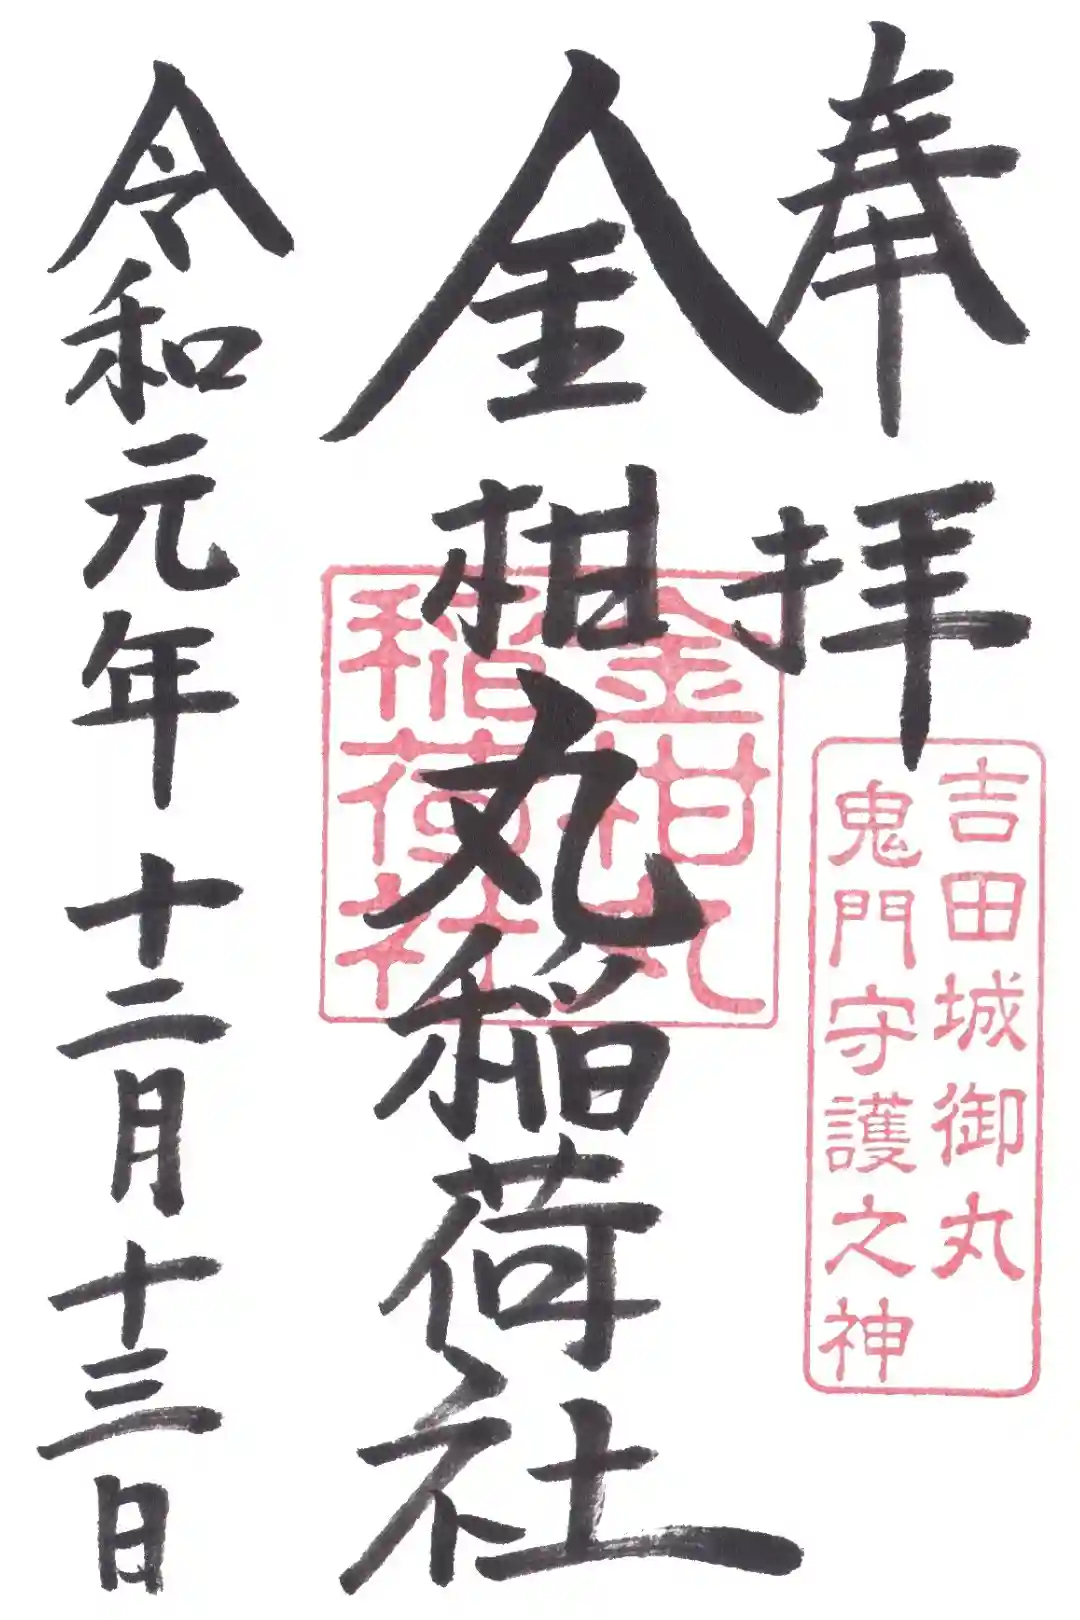 奉拝
吉田城御丸
鬼門守護之神
金柑丸稲荷社
金柑丸
稲荷社
令和元年十二月十三日